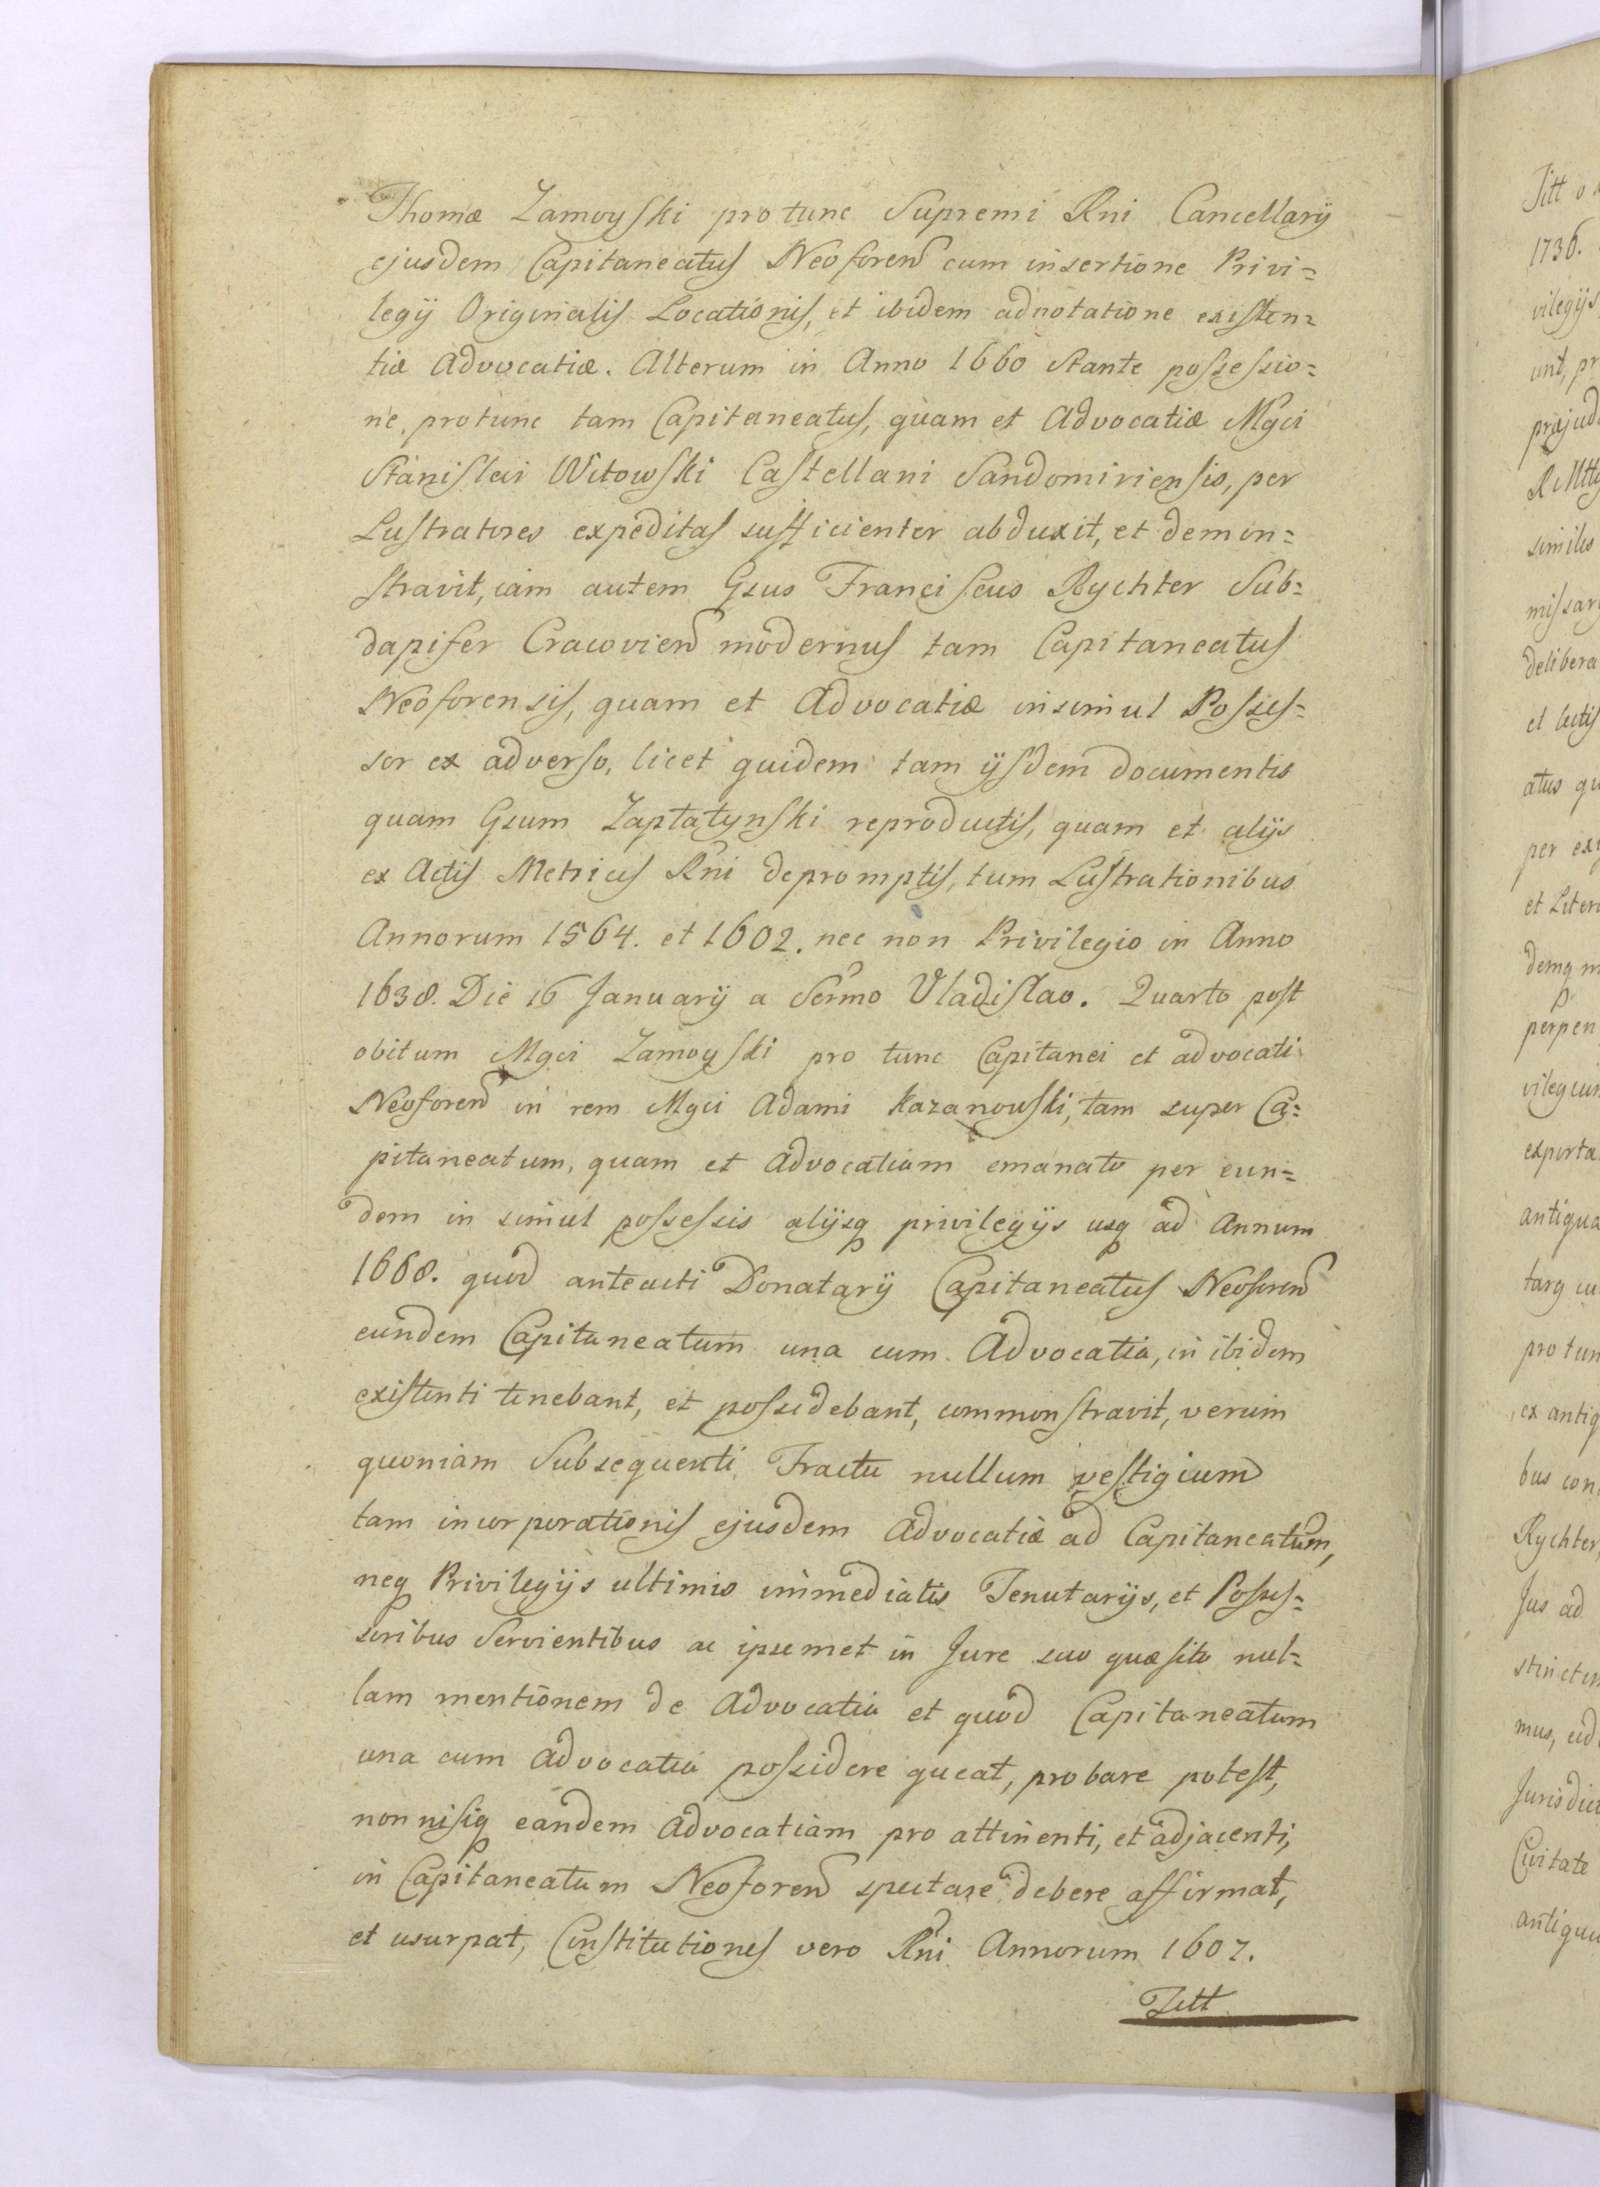 Thomæ Zamoyski pro tunc Supremi Rni Cancellarÿ
ejusdem Capitaneatus Neoforen cum insertione Privi=
legÿ Originalis Locationis, et ibidem adnotatione existen=
tiæ Advocatiæ. Alterum in Anno 1660 stante possessio=
ne, protunc tam Capitaneatus, quam et Advocatiæ Mgci
Stanislai Witowski Castellani Sandomiriensis, per
Lustratores expeditas sufficienter abduxit, et demon=
stravit, iam autem Gsus Franciscus Rychter Sub=
dapifer Cracovien modernus tam Capitaneatus
Neoforensis, quam et Advocatiæ insimul Posses=
sor ex adverso, licet quidem tam ÿsdem documentis
quam Gsum Zaptatynski reproductis, quam et alÿs
ex Actis Metrices Rni depromptis, tum Lustrationibus
Annorum 1564. et 1602. nec non Privilegio in Anno
1638. Die 16 Januarÿ a Sermo Vladislao. Quarto post
obitum Mgci Zamoyski pro tunc Capitanei et advocati
Neoforen in rem Mgci Adami Kazanowski, tam super Ca=
pitaneatum, quam et Advocatiam emanato per eun=
dem in simul possessis alÿsq privilegÿs usq ad Annum
1668. quod anteacti Donatarÿ Capitaneatus Neoforen
eundem Capitaneatum una cum Advocatia, in ibidem
existenti tenebant, et possidebant, commonstravit, verum
quoniam Subsequenti Tractu nullum vestigium
tam incorporationis ejusdem Advocatiæ ad Capitaneatum,
neq Privilegÿs ultimis immediatis Tenutarÿs, et Posses=
soribus Servientibus ac ipsemet in Jure suo quæsito nul=
lam mentionem de Advocatia et quod Capitaneatum
una cum Advocatia possidere queat, probare potest,
non nisiq eandem Advocatiam pro attinenti, et adjacenti,
in Capitaneatum Neoforen spectare debere affirmat,
et usurpat, Constitutiones vero Rni Annorum 1607.
Titt
Titt o
1736.
vilegÿs
unt, pr
præjud
similes
missar
delibera
et lectis
atus qu
per ex
et Liter
demq m
perpen
vilegium
experta
antiqua
tarq cu
pro tun
ex antiq
bus con
Rychter,
Jus ad
stinct
mus, eid
Jurisdic
Civitate
antiqu